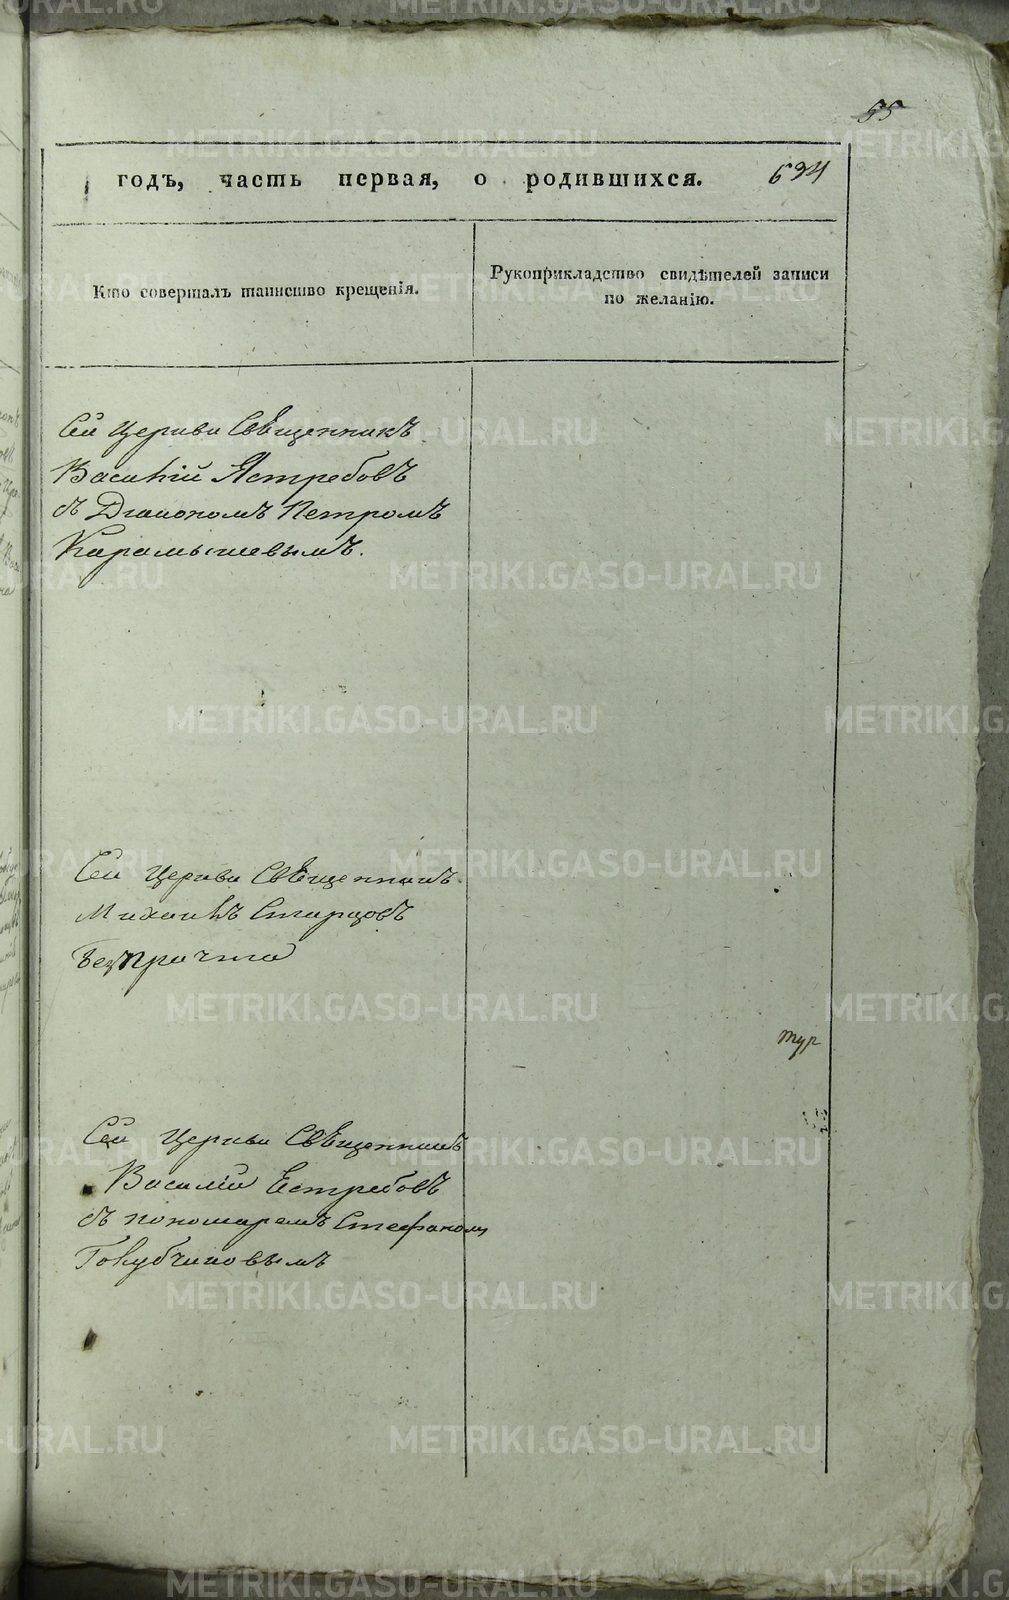 55
годъ, часть первая, о родившихся. 694
Кто совершалъ таинство крещенія.
Рукоприкладство свидѣтелей записи
по желанію.
Сей Церкви Священникъ
Василій Ястребовъ
съ Діакономъ Петромъ
Карамышевымъ.
Сей Церкви Священникъ
Михаилъ Старцовъ
безъ причта
Сей Церкви Священникъ
Василій Естребовъ
съ пономаремъ Стефаномъ
Голубчиковымъ
METRIKI.GASO-URAL.RU